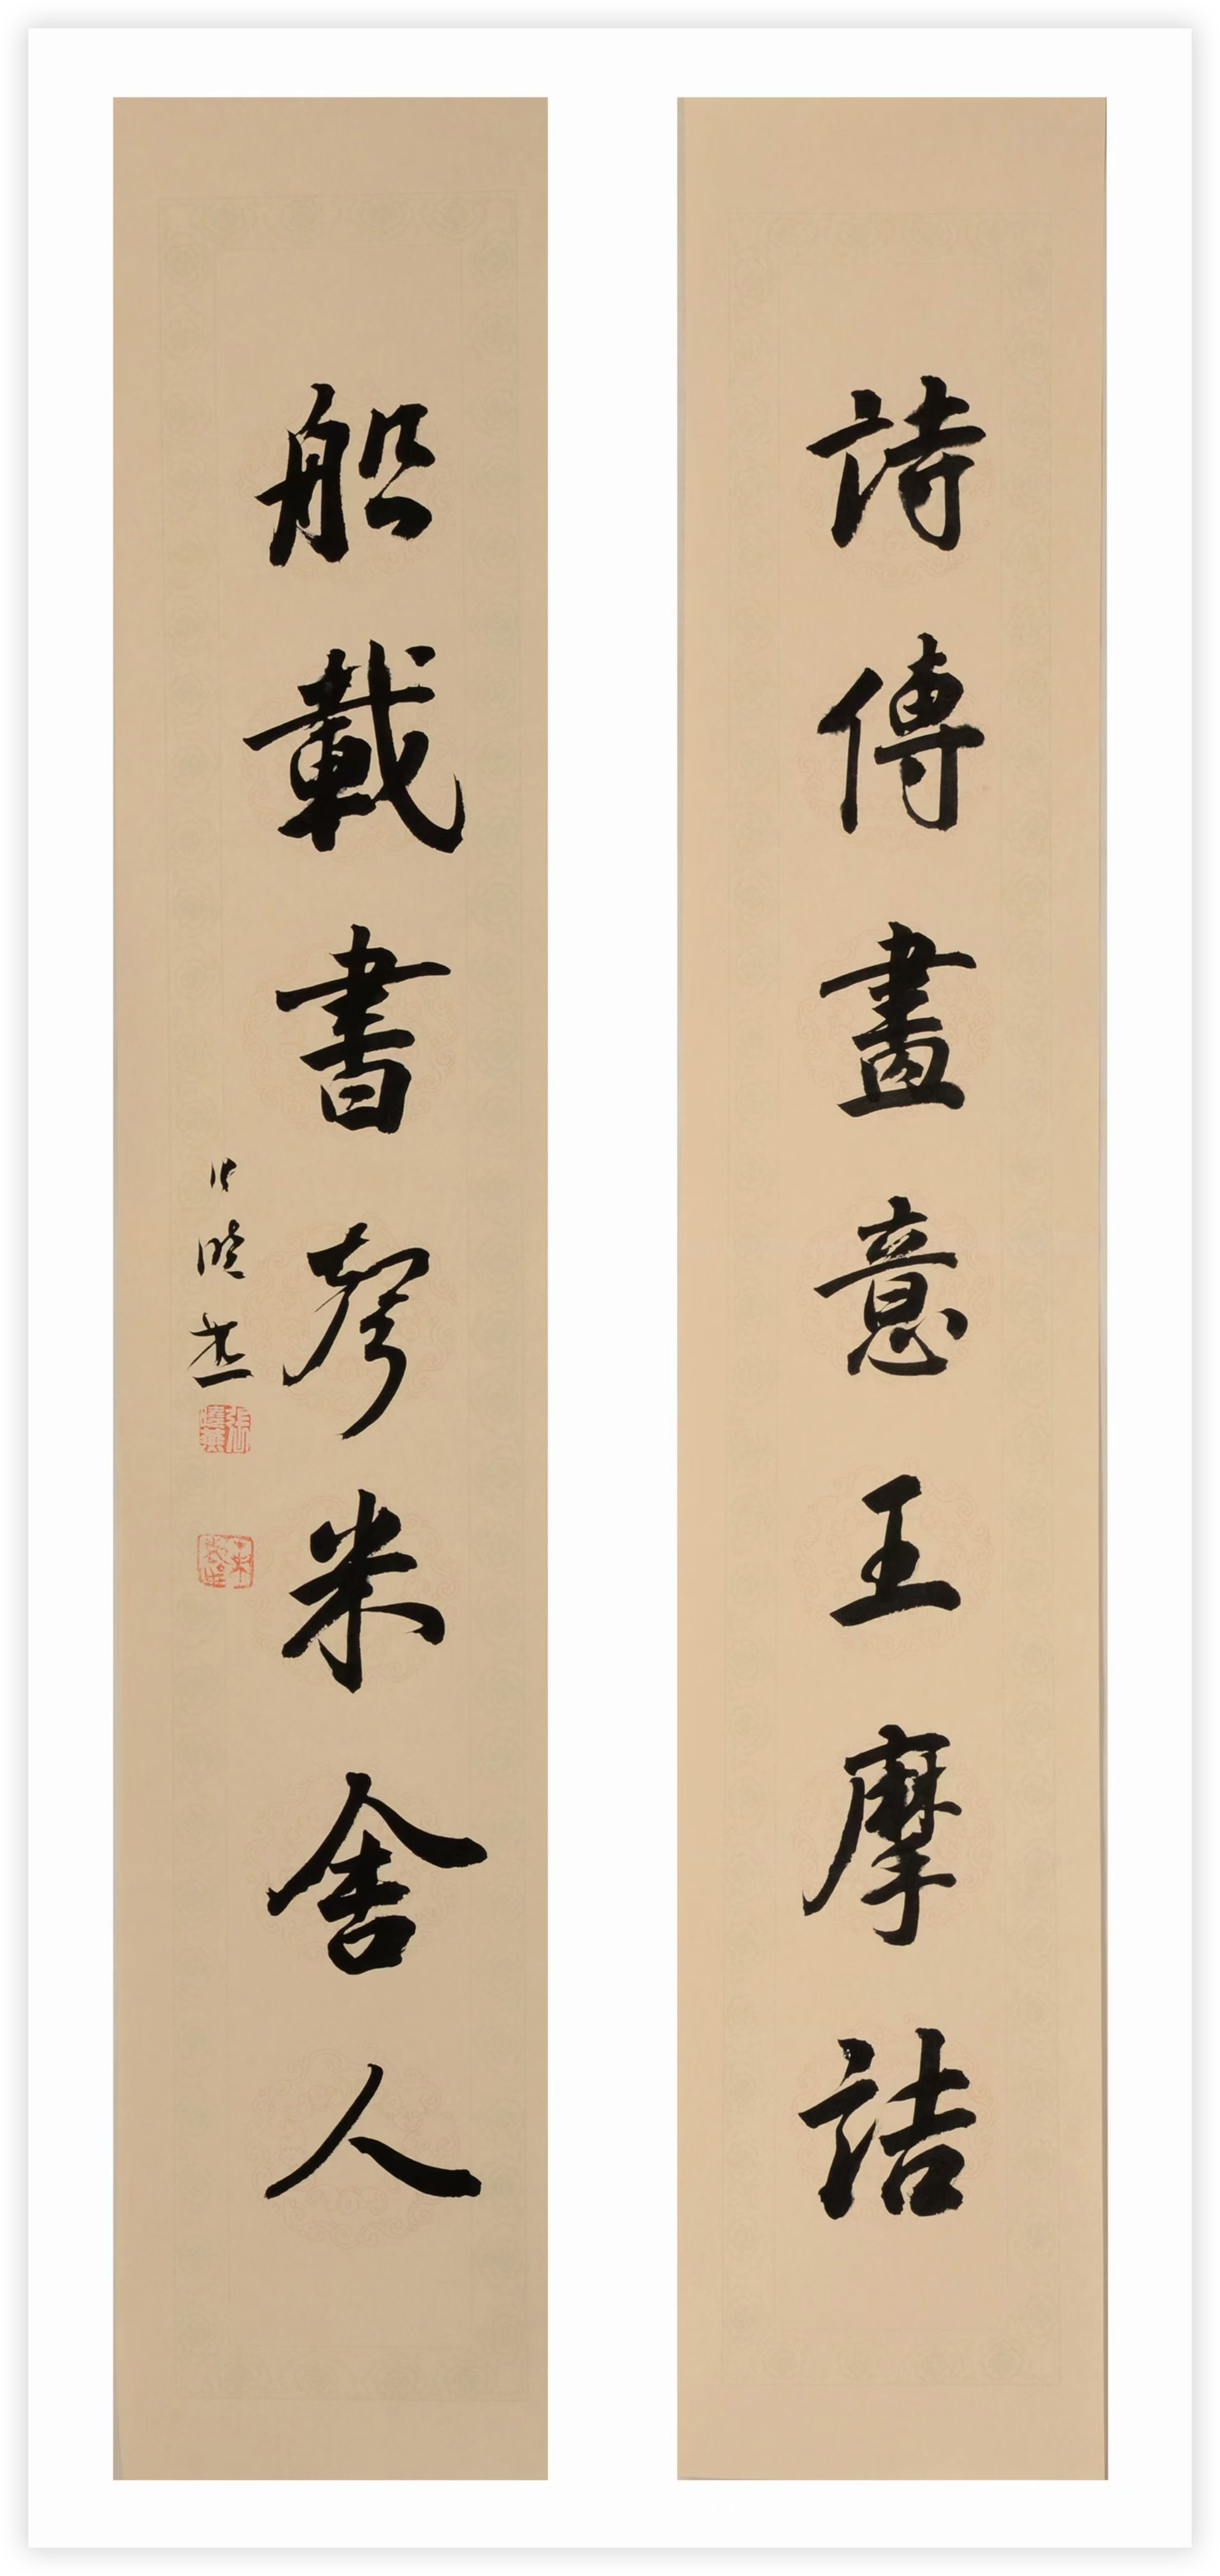 詩傳畫意王摩詰
船載書聲米舍人